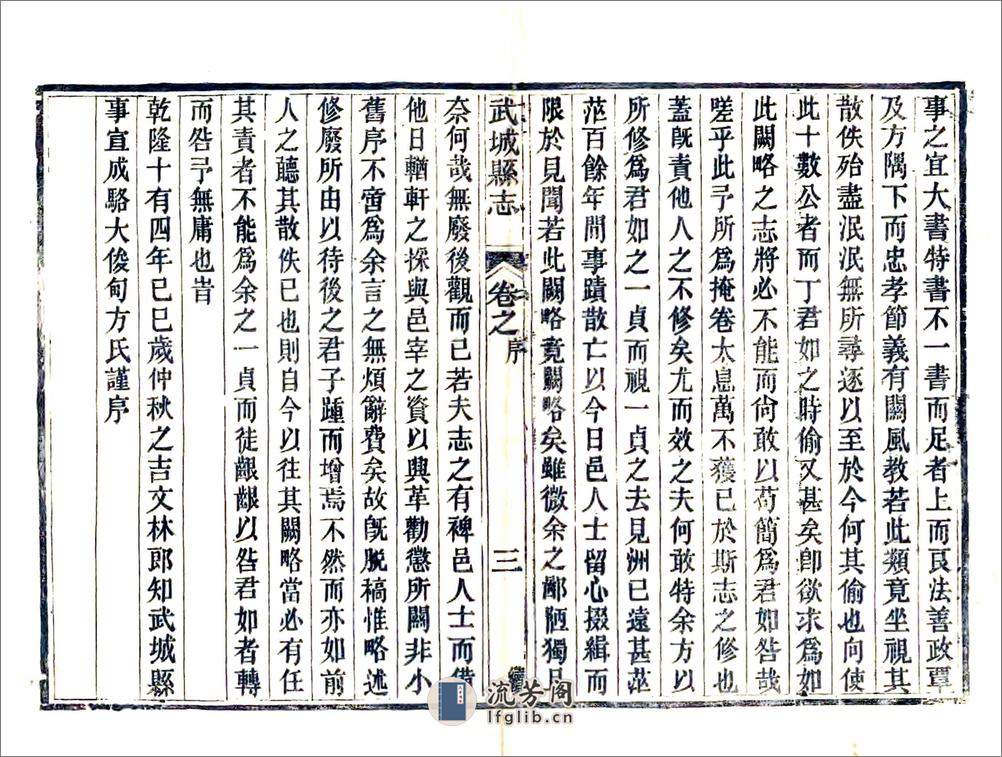 事之宜大書特書不一書而足者上而良法善政覃
及方隅下而忠孝節義有關風教若此類竟坐視其
散佚殆盡泯泯無所尋逐以至於今何其偷也向使
此十數公者而丁君如之時偷又甚矣卽欲求爲如
此闕略之志將必不能而尙敢以苟簡爲君如咎哉
嗟乎此予所爲掩卷太息萬不獲已於斯志之修也
蓋旣責他人之不修矣尤而效之夫何敢特余方以
所修爲君如之一貞而視一貞之去見洲已遠甚茫
茫百餘年間事蹟散亡以今日邑人士留心掇緝而
限於見聞若此闕略竟闕略矣雖微余之鄙陋獨且
武城縣志 卷之 序 三
奈何哉無廢後觀而已若夫志之有裨邑人士而備
他日輶軒之採與邑宰之資以興革勸懲所關非小
舊序不啻爲余言之無煩辭費矣故旣脫稿惟略述
修廢所由以待後之君子踵而增焉不然而亦如前
人之聽其散佚已也則自今以往其闕略當必有任
其責者不能爲余之一貞而徒齦齦以咎君如者轉
而咎予無庸也旹
乾隆十有四年己巳歲仲秋之吉文林郎知武城縣
事宜成駱大俊甸方氏謹序
流芳阁
lfglib.cn